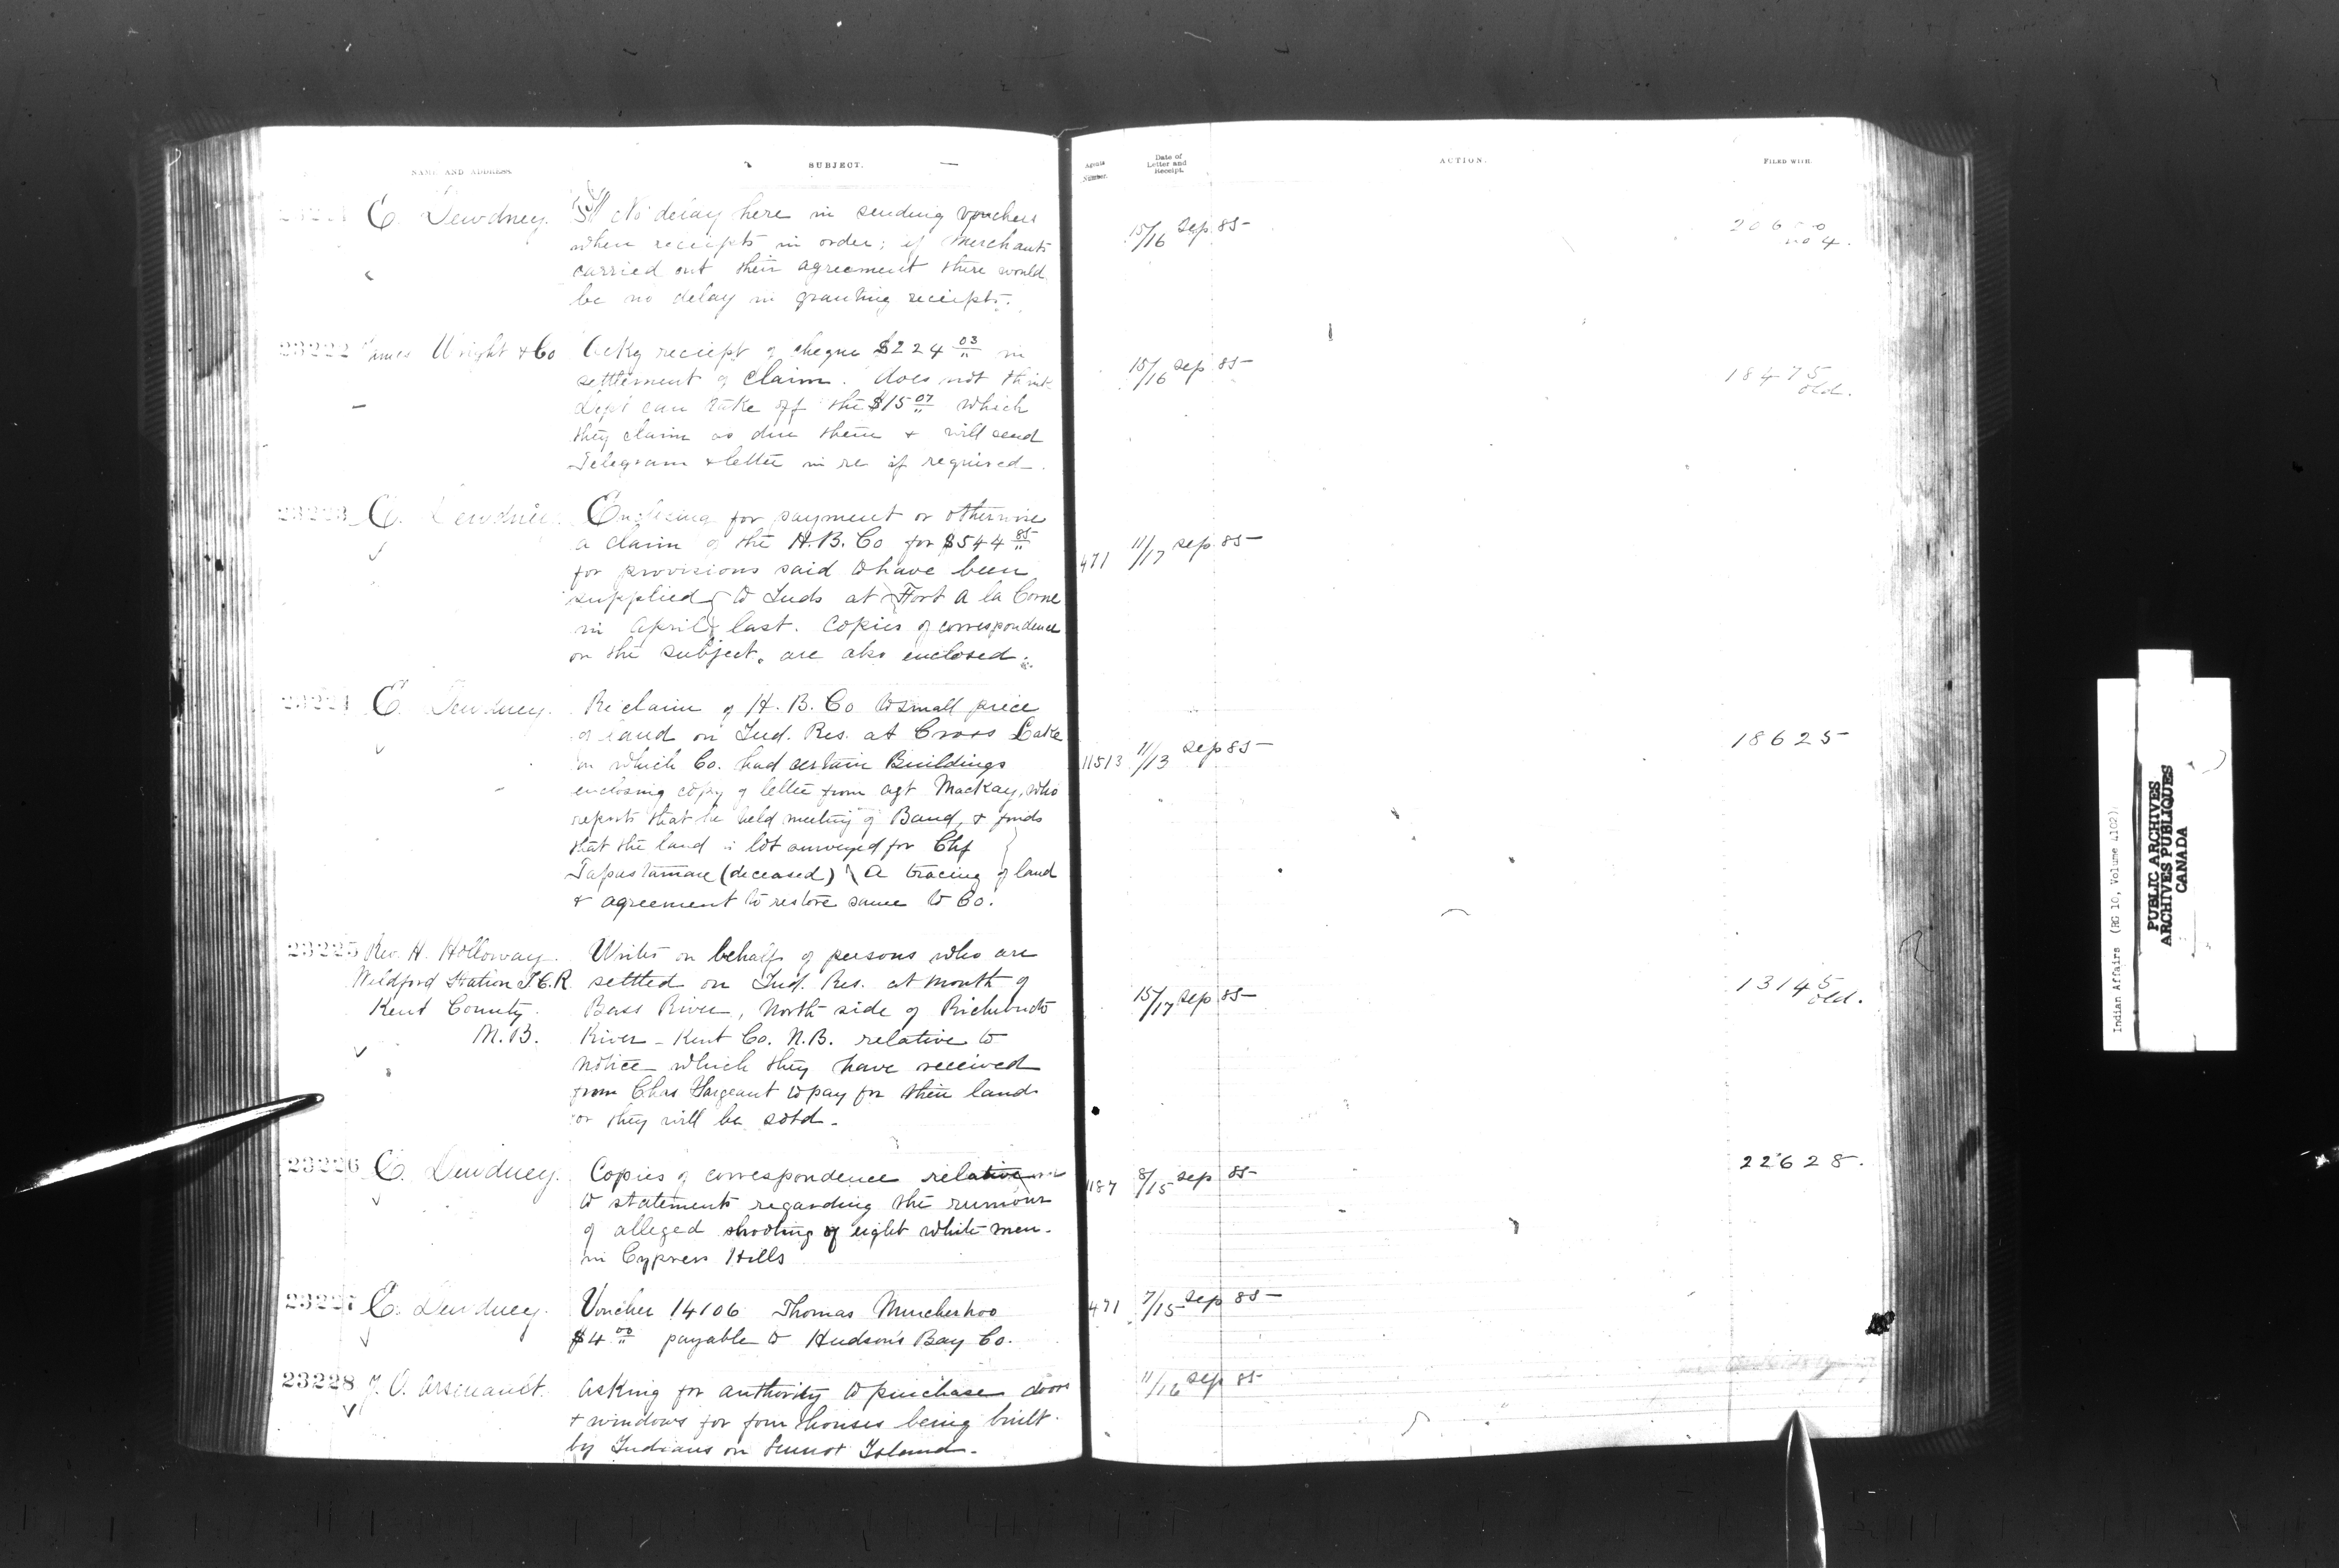 NAME AND ADDRESS. SUBJECT. Agents Number. Date of Letter and Receipt. ACTION. FILED WITH.
23221 E. Dewdney. No delay here in sending vouchers 15/16 Sep. 85
when receipts in order; if Merchants no 4.
carried out their agreement there would
be no delay in granting receipts.
23222 James Wright & Co Ackg receipt of cheque $224 03 in 15/16 Sep 85 18475
settlement of claim. does not think old.
Dept can take off the $15 07 which
they claim as due them & will send
Telegram & letter in re if required.
23223 E. Dewdney Enclosing for payment or otherwise
a claim of the H.B. Co for $544 85 471 11/17 Sep. 85
for provisions said to have been
supplied to Inds at Fort a la Corne
in April last. Copies of correspondence
on the subject are also enclosed.
23224 E. Dewdney. Re claim of H. B. Co to small piece
of land on Ind. Res. at Cross Lake 11513 11/13 Sep 85 18625
on which Co. had certain Buildings
enclosing copy of letter from agt Mackay, who
reports that he held meeting of Band, & finds
that the land is lot surveyed for Chf
(deceased) A tracing of land
& agreement to restore same to Co.
23225 Rev. H. Holloway. Writes on behalf of persons who are
Weldford Station I.C.R. settled on Ind. Res. at mouth of 15/17 Sep 85 13145
Kent County Bass River, North side of Richibucto old.
N.B. River - Kent Co. N.B. relative to
notice which they have received
from Chas Sargeant to pay for their lands
or they will be sold.
23226 E. Dewdney. Copies of correspondence relative 1187 8/15 Sep 85 22628.
to statements regarding the rumour
of alleged shooting of eight white men
in Cypress Hills
23227 E. Dewdney. Voucher 14106 Thomas 471 7/15 Sep 85
$4 00 payable to Hudson's Bay Co.
23228 J. O. Arsenault. Asking for authority to purchase doors 11/16 Sep 85
& windows for four houses being built
by Indians on Lennox Island.
Indian Affairs (RG 10, Volume 4102)
PUBLIC ARCHIVES
ARCHIVES PUBLIQUES
CANADA